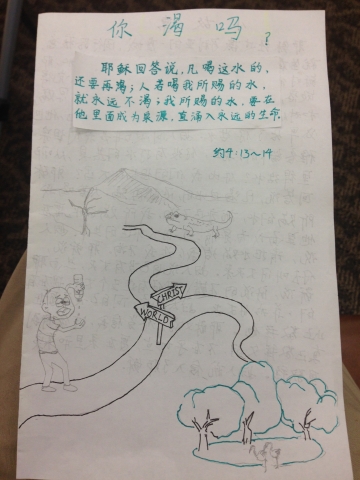 你渴吗?
耶稣回答说,凡喝这水的,
还要再渴;人若喝我所赐的水,
就永远不渴;我所赐的水,要在
他里面成为泉源,直涌入永远的生命.
约4:13~14
CHRIST
WORLD